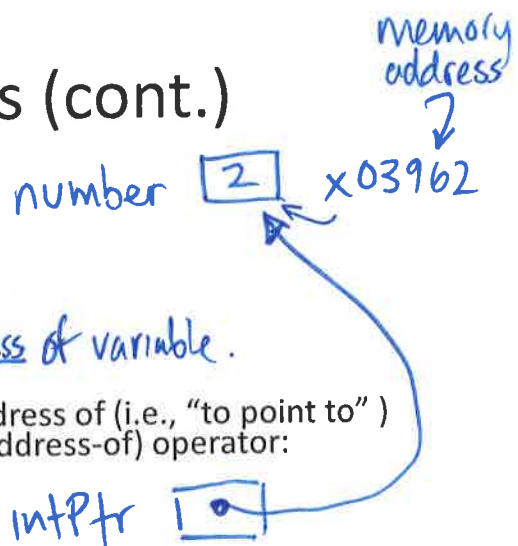 memory
address
s (cont.)
number 2 x03962
ss of variable.
dress of (i.e., "to point to" )
ddress-of) operator:
intPtr